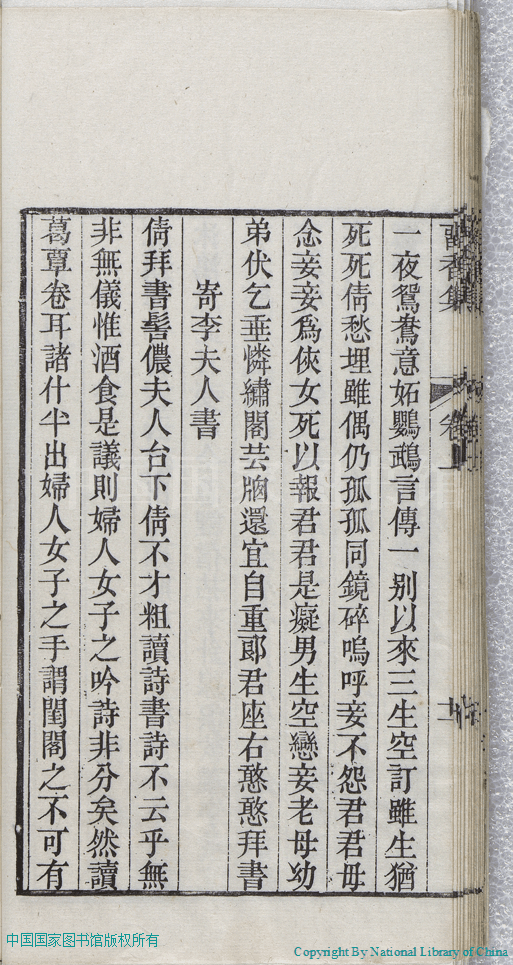 一夜鴛鴦意妬鸚鵡言傳一別以來三生空訂雖生猶
死死倩愁埋雖偶仍孤孤同鏡碎嗚呼妾不怨君君毋
念妾妾爲俠女死以報君君是癡男生空戀妾老母幼
弟伏乞垂憐繡閣芸牕還宜自重郞君座右憨憨拜書
寄李夫人書
倩拜書髻儂夫人台下倩不才粗讀詩書詩不云乎無
非無儀惟酒食是議則婦人女子之吟詩非分矣然讀
葛覃卷耳諸什半出婦人女子之手謂閨閣之不可有
中国国家图书馆版权所有
Copyright By National Library of China